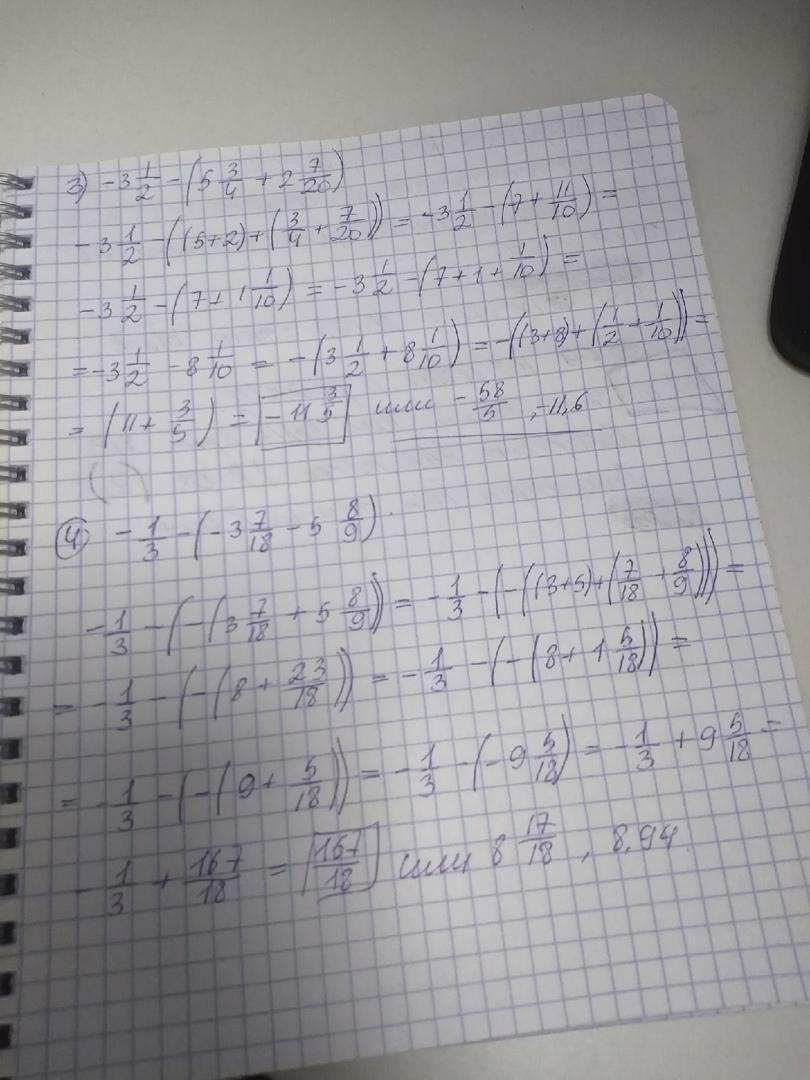 3) -3 1/2 - (5 3/4 + 2 7/20)
-3 1/2 - ((5+2) + (3/4 + 7/20)) = -3 1/2 - (7 + 11/10) =
-3 1/2 - (7 + 1 1/10) = -3 1/2 - (7 + 1 + 1/10) =
= -3 1/2 - 8 1/10 = -(3 1/2 + 8 1/10) = -((3+8) + (1/2 + 1/10)) =
= (11 + 3/5) = -11 3/5 или -58/5 , -11,6
4) -1/3 - (-3 7/18 - 5 8/9).
-1/3 - (-(3 7/18 + 5 8/9)) = -1/3 - (-((3+5) + (7/18 + 8/9))) =
= -1/3 - (-(8 + 23/18)) = -1/3 - (-(8 + 1 5/18)) =
= -1/3 - (-(9 + 5/18)) = -1/3 - (-9 5/18) = -1/3 + 9 5/18 =
-1/3 + 167/18 = 167/18 или 8 17/18 , 8,94